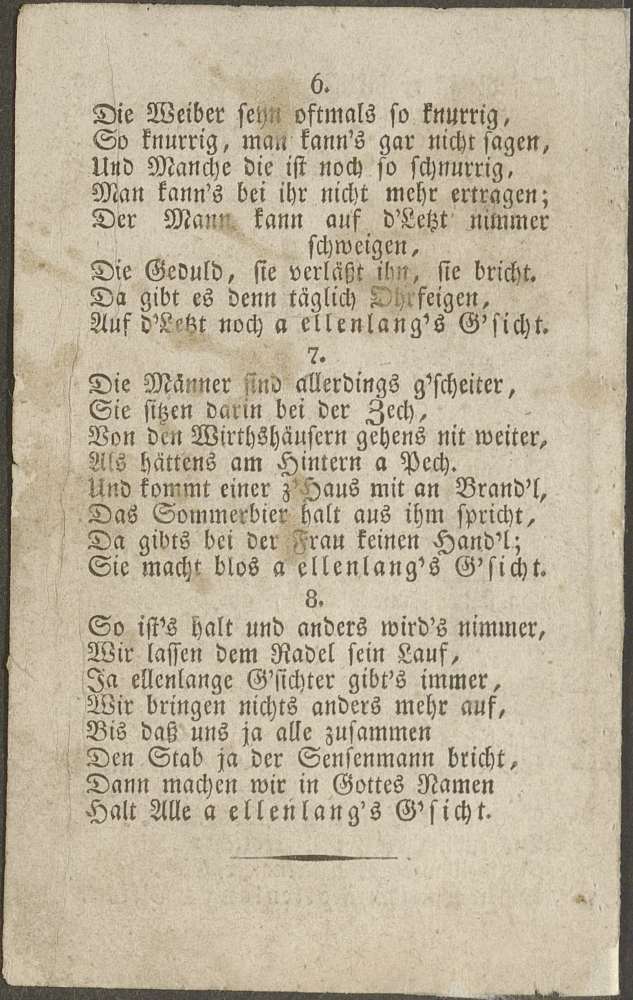 6.
Die Weiber seyn oftmals so knurrig,
So knurrig, man kann's gar nicht sagen,
Und Manche die ist noch so schnurrig,
Man kann's bei ihr nicht mehr ertragen;
Der Mann kann auf d'Letzt nimmer
schweigen,
Die Geduld, sie verläßt ihn, sie bricht.
Da gibt es denn täglich Ohrfeigen,
Auf d'Letzt noch a ellenlang's G'sicht.
7.
Die Männer sind allerdings g'scheiter,
Sie sitzen darin bei der Zech,
Von den Wirthshäusern gehens nit weiter,
Als hättens am Hintern a Pech.
Und kommt einer z'Haus mit an Brand'l,
Das Sommerbier halt aus ihm spricht,
Da gibts bei der Frau keinen Hand'l;
Sie macht blos a ellenlang's G'sicht.
8.
So ist's halt und anders wird's nimmer,
Wir lassen dem Radel sein Lauf,
Ja ellenlange G'sichter gibt's immer,
Wir bringen nichts anders mehr auf,
Bis daß uns ja alle zusammen
Den Stab ja der Sensenmann bricht,
Dann machen wir in Gottes Namen
Halt Alle a ellenlang's G'sicht.